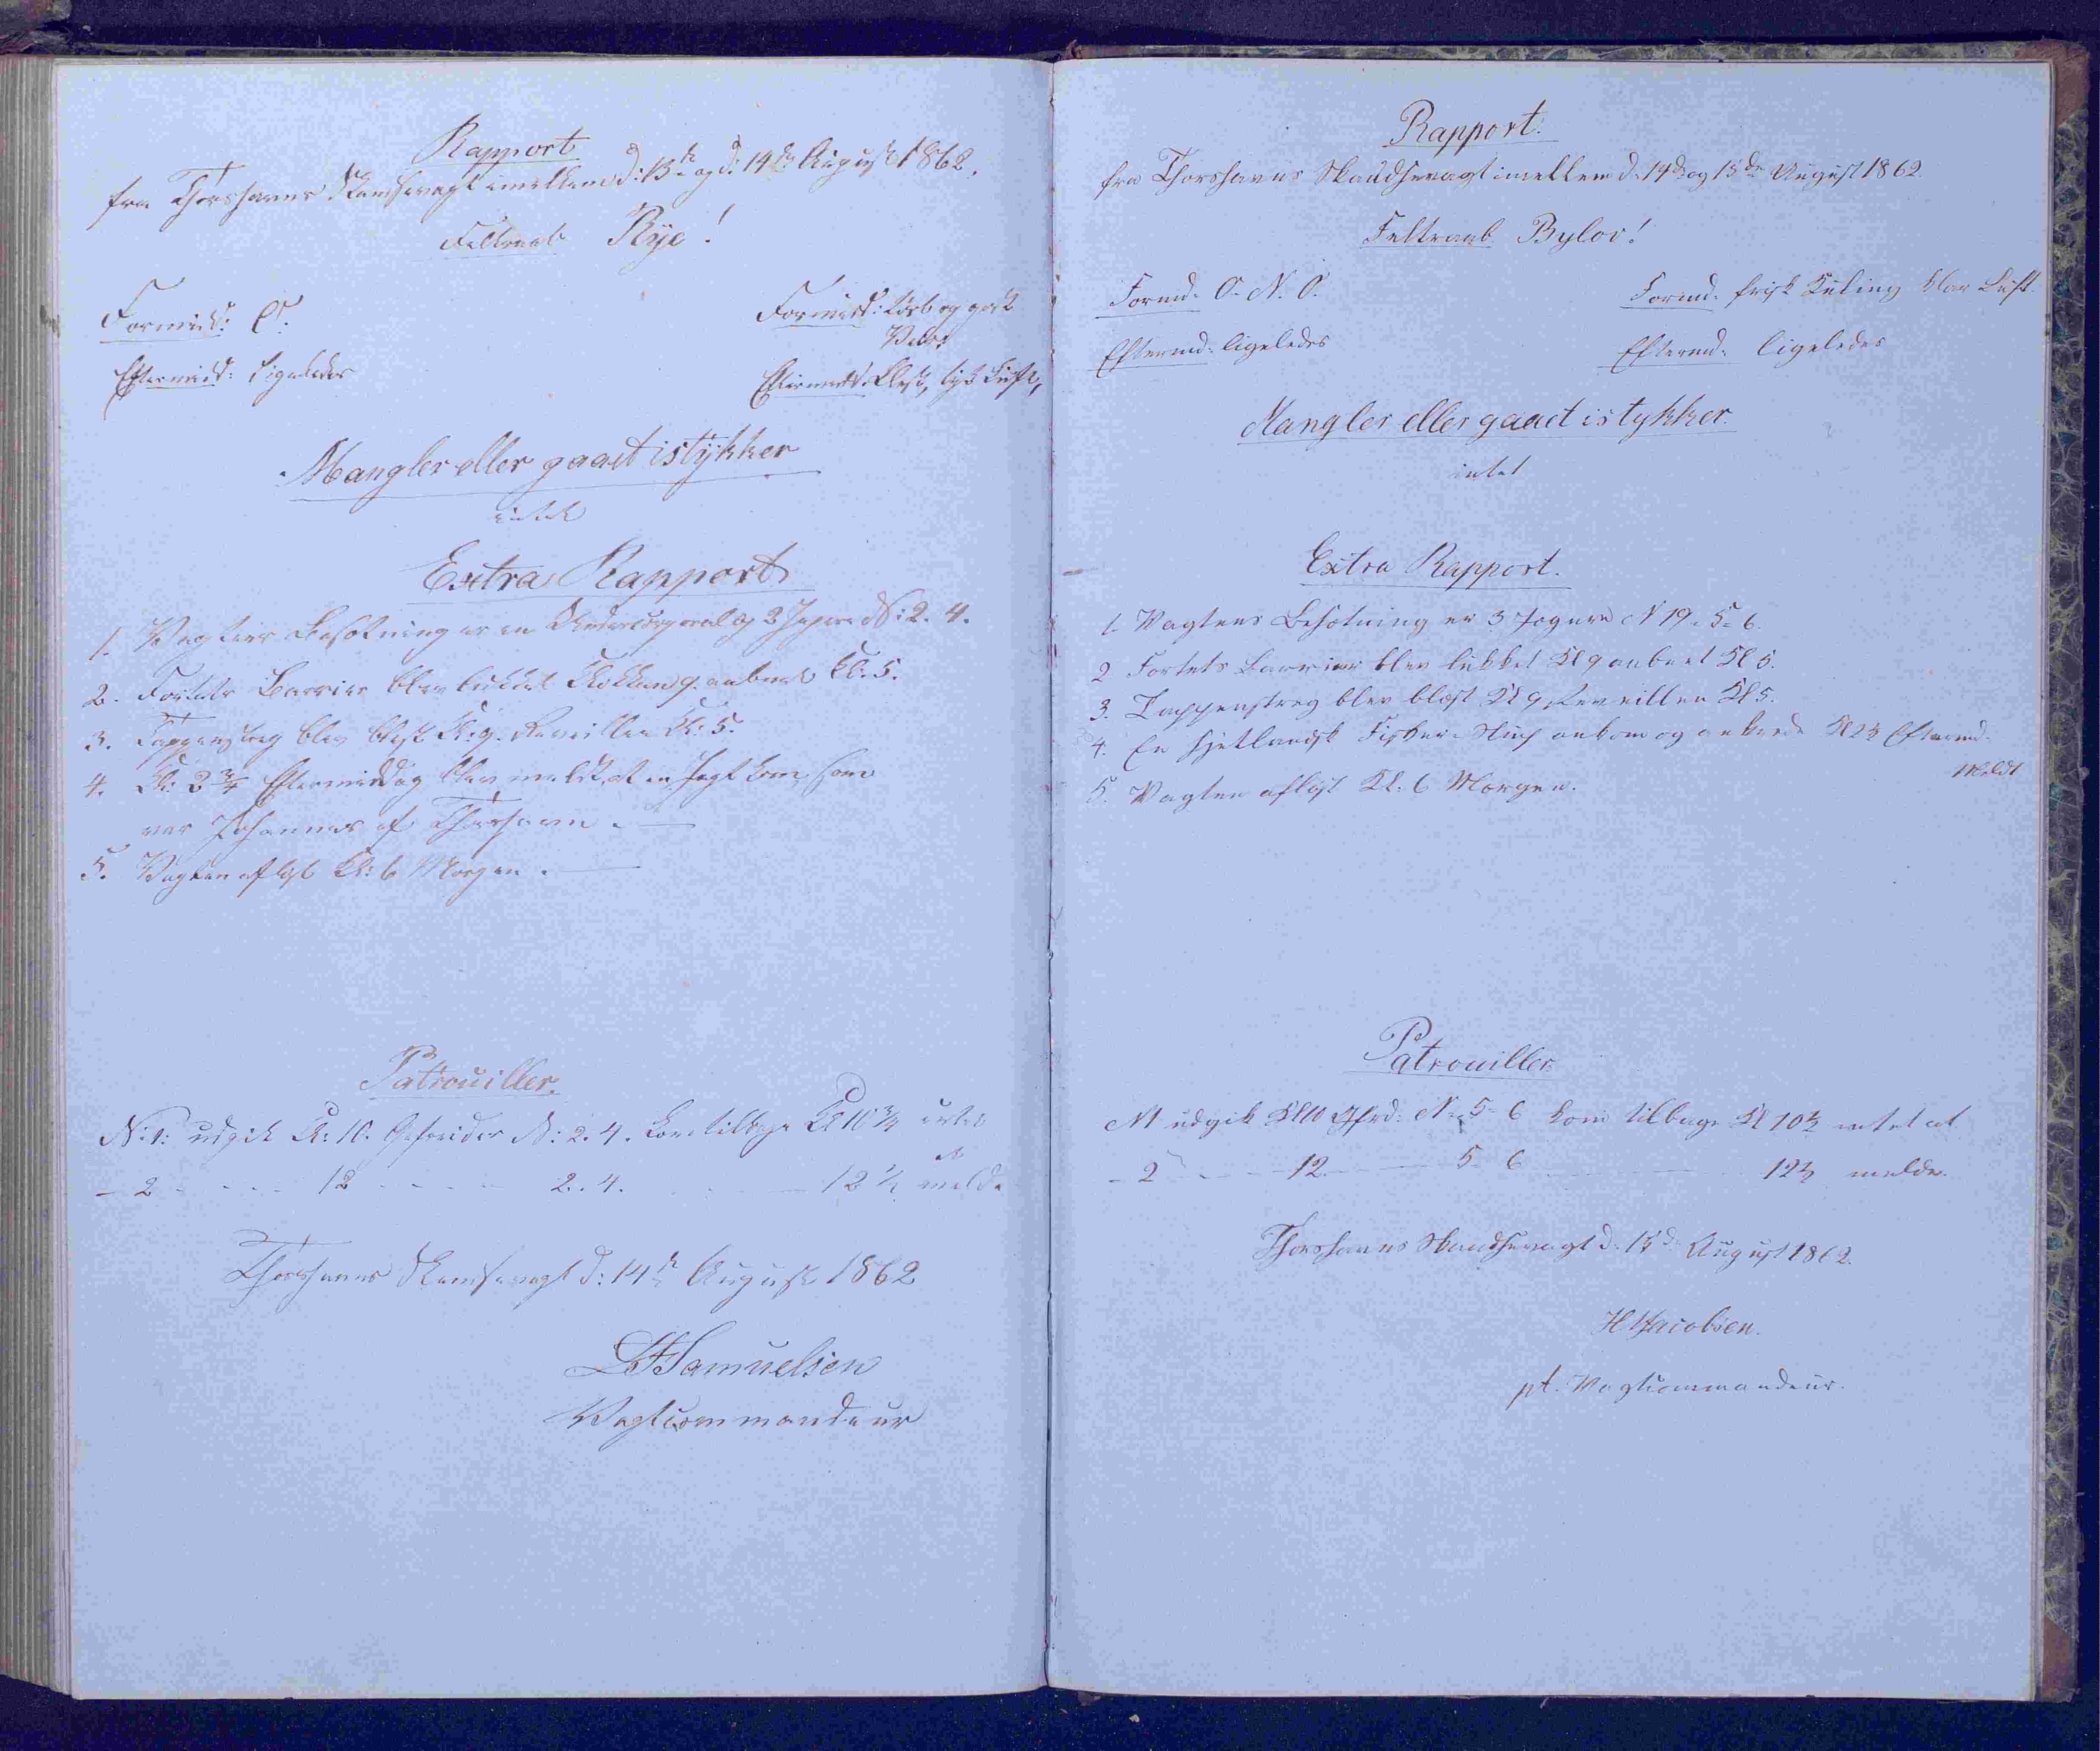 Rapport
fra Thorshavns Skandsevagt imellem d: 13de og d: 14de August 1862.
Feltraab Rye!
Formidd: O.
Formidd: tørt og godt
Veir
Eftermidd: Ligeledes
Eftermidd: blæst, tyk Luft,
Mangler eller gaaet istykker
intet
Extra Rapport
1. Vagtens Besætning er en Undercorporal og 2 Jægere N: 2. 4.
2. Fortets Barriere blev lukket Klokken 9. aabnet Kl: 5.
3. Tappenstreg blev blæst Kl: 9. Reveillen Kl: 5.
4. Kl: 2 3/4 Eftermiddag blev meldt, at en Jagt kom, som
var Johannes af Thorshavn.
5. Vagten afløst Kl: 6 Morgen.
Patrouiller.
N: 1: udgik Kl: 10. Gefreider N: 2. 4. kom tilbage Kl 10 3/4 intet
at
- 2 - - - - 12 - - - - 2. 4. - - - 12 1/2 melde
Thorshavns Skandsevagt d: 14de August 1862
Samuelsen
Vagtcommandeur
Rapport.
fra Thorshavns Skandsevagt imellem d. 14de og 15de August 1862.
Feltraab Bylov!
Formd. O. N. O.
Formd. frisk Kuling klar Luft.
Eftermd: ligeledes
Eftermd: ligeledes
Mangler eller gaaet istykker.
intet
Extra Rapport.
1. Vagtens Besætning er 3 Jægere N 19. 5. 6.
2 Fortets Barriere blev lukket Kl 9 aabnet Kl 5.
3. Tappenstreg blev blæst Kl 9 Reveillen Kl 5.
4. En hjetlandsk Fisker-Slup ankom og ankrede Kl 2 1/2 Eftermd.
Meldt
5. Vagten afløst Kl: 6 Morgen.
Patrouiller.
N1 udgik Kl 10 Gfrd: N. 5 6 kom tilbage Kl 10 1/2 intet at
- 2 - - - 12 - - - 5 6 - - - 12 1/2 melde.
Thorshavns Skandsevagt d. 15de August 1862.
Jacobsen.
pt. Vagtcommandeur.